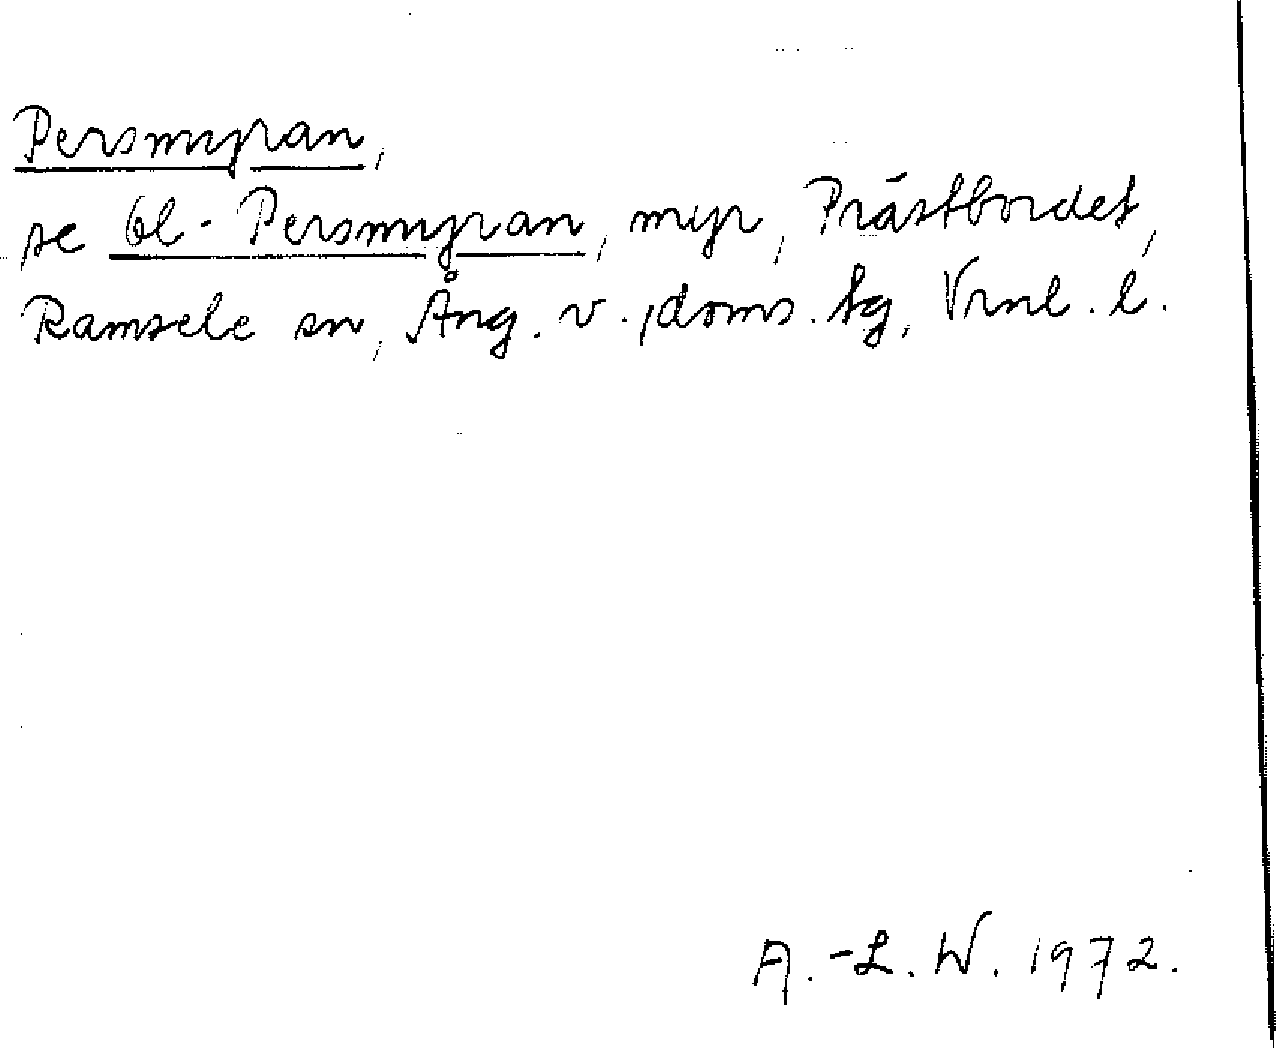 Persmyran,
se Ol-Persmyran, myr, Prästbordet,
Ramsele sn, Ång. v., doms. tg, Vrnl. l.
A.-L. W. 1972.